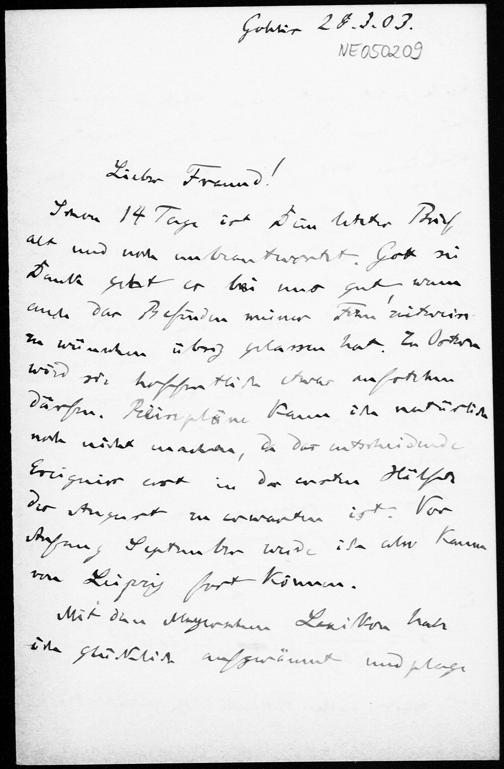 Gohlis 28.3.03.
NE050209
Lieber Freund!
Schon 14 Tage ist Dein letzter Brief
alt und noch unbeantwortet. Gott sei
Dank geht es bei uns gut, wenn
auch das Befinden meiner Frau zeitweise
zu wünschen übrig gelassen hat. Zu Ostern
wird sie hoffentlich etwas aufstehen
dürfen. Reisepläne kann ich natürlich
noch nicht machen, da das entscheidende
Ereigniss erst in der ersten Hälfte
des August zu erwarten ist. Vor
Anfang September werde ich also kaum
von Leipzig fort können.
Mit dem Meyerschen Lexikon hab
ich glücklich aufgeräumt und plage